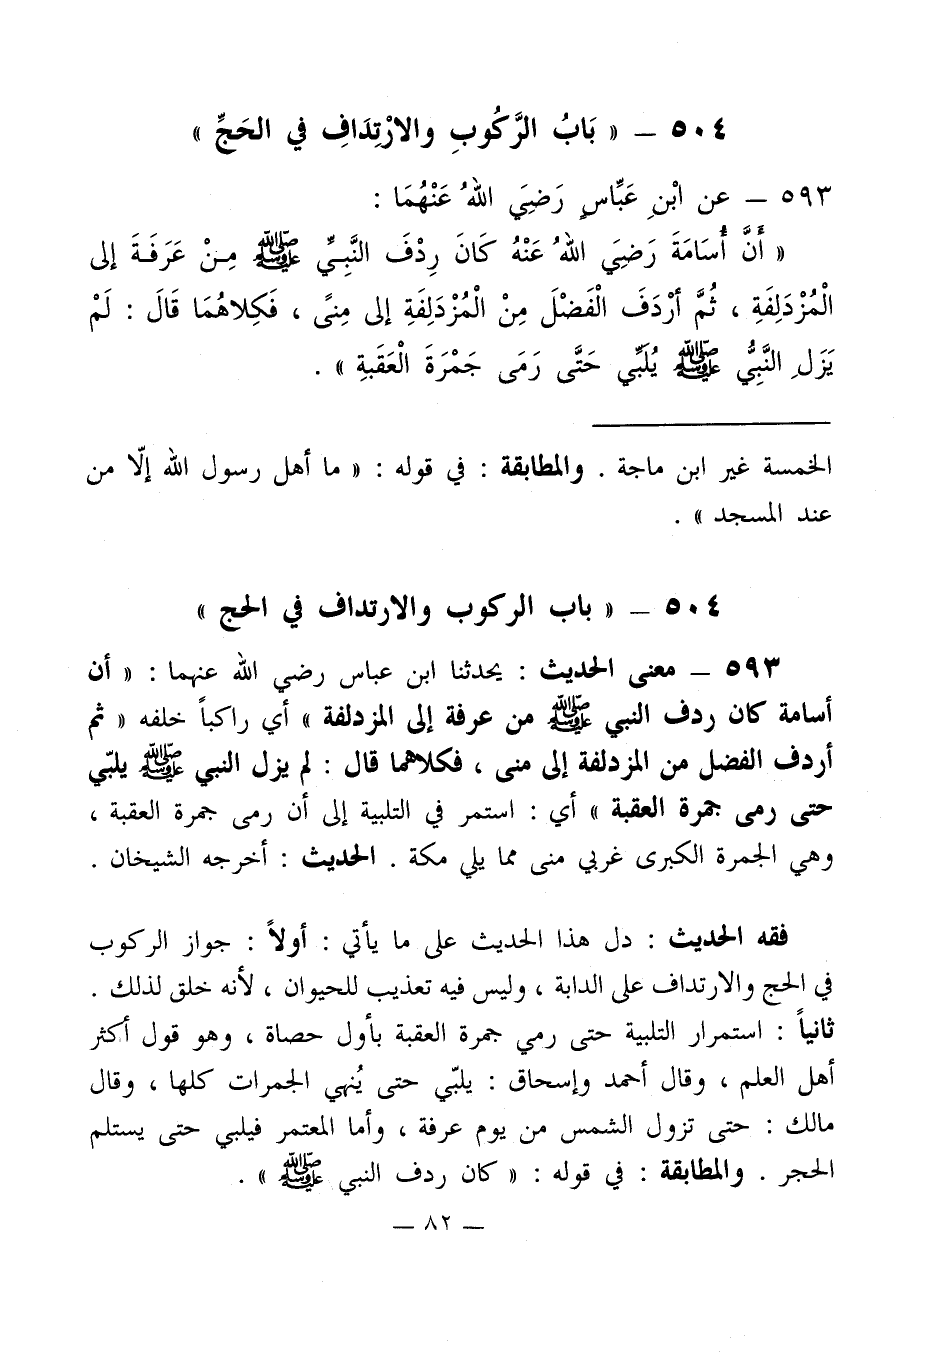 ٥٠٤ – « بَابُ الرُّكُوبِ والارْتِدَافِ في الحَجِّ »
٥٩٣ – عن ابْنِ عَبَّاسٍ رَضِيَ اللهُ عَنْهُمَا :
« أَنَّ أُسَامَةَ رَضِيَ اللهُ عَنْهُ كَانَ رِدْفَ النَّبِيِّ ﷺ مِنْ عَرَفَةَ إلى
الْمُزْدَلِفَةِ ، ثُمَّ أرْدَفَ الْفَضْلَ مِنْ الْمُزْدَلِفَةِ إلى مِنىً ، فَكِلاهُمَا قَالَ : لَمْ
يَزَلِ النَّبِيُّ ﷺ يُلَبِّي حَتَّى رَمَى جَمْرَةَ الْعَقَبَةِ » .
الخمسة غير ابن ماجة . والمطابقة : في قوله : « ما أهل رسول الله إلّا من
عند المسجد » .
٥٠٤ – « باب الركوب والارتداف في الحج »
٥٩٣ – معنى الحديث : يحدثنا ابن عباس رضي الله عنهما : « أن
أسامة كان ردف النبي ﷺ من عرفة إلى المزدلفة » أي راكباً خلفه « ثم
أردف الفضل من المزدلفة إلى منى ، فكلاهما قال : لم يزل النبي ﷺ يلبّي
حتى رمى جمرة العقبة » أي : استمر في التلبية إلى أن رمى جمرة العقبة ،
وهي الجمرة الكبرى غربي منى مما يلي مكة . الحديث : أخرجه الشيخان .
فقه الحديث : دل هذا الحديث على ما يأتي : أولاً : جواز الركوب
في الحج والارتداف على الدابة ، وليس فيه تعذيب للحيوان ، لأنه خلق لذلك .
ثانياً : استمرار التلبية حتى رمي جمرة العقبة بأول حصاة ، وهو قول أكثر
أهل العلم ، وقال أحمد وإسحاق : يلبّي حتى يُنهي الجمرات كلها ، وقال
مالك : حتى تزول الشمس من يوم عرفة ، وأما المعتمر فيلبي حتى يستلم
الحجر . والمطابقة : في قوله : « كان ردف النبي ﷺ » .
– ٨٢ –